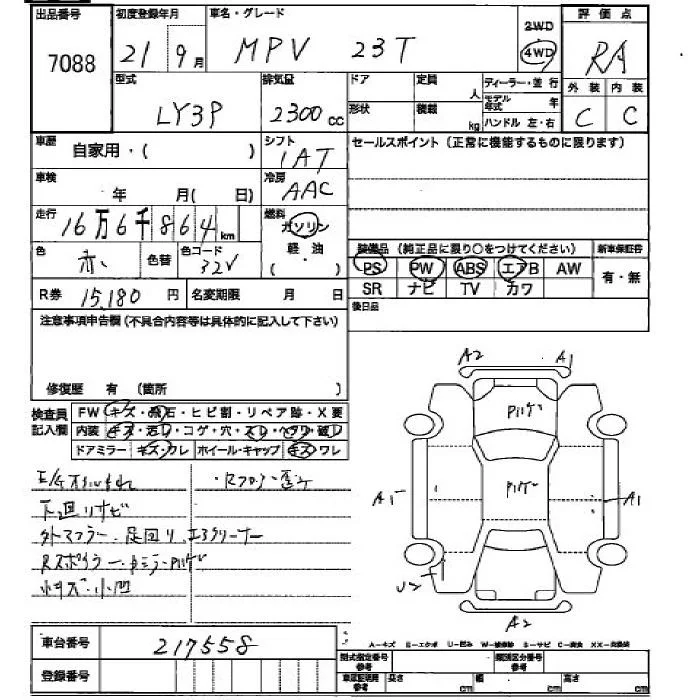 出品番号 初度登録年月 車名・グレード 2WD 評価点
7088 21 9月 MPV 23T 4WD RA
型式 排気量 ドア 定員 人 ディーラー・並行 外装 内装
LY3P 2300cc 形状 積載 kg モデル年式 年 ハンドル 左・右 C C
車歴 自家用・( ) シフト 1AT セールスポイント(正常に機能するものに限ります)
車検 年 月(日) 冷房 AAC
走行 16万6千864km 燃料 ガソリン 軽・油 ( )
色 赤 色替 色コード 32V
装備品(純正品に限り○をつけてください) 新車保証書
PS PW ABS エアB AW 有・無
R券 15,180円 名変期限 月 日 SR ナビ TV カワ
注意事項申告欄(不具合内容等は具体的に記入して下さい) 後日品
修復歴 有 (箇所
検査員記入欄 FW キズ・飛石・ヒビ割・リペア跡・X要
内装 キズ・汚れ・コゲ・穴・スレ・ヘタリ・破レ
ドアミラー キズ・ワレ ホイール・キャップ キズ ワレ
A2 A1
Pハゲ
Pハゲ
A1 A1
U2
A2
E/Gオイルもれ ・Rフロアー歪み
下廻りサビ
外マフラー・足回り、エアクリーナー
Rスポイラー・ミラーPハゲ
小キズ・小凹
車台番号 217558
A-キズ E-エクボ U-凹み W-補修跡 S-サビ C-腐食 XX-交換済
登録番号 型式指定番号参考 類別区分番号参考
車庫証明用参考 長さ cm 幅 cm 高さ cm